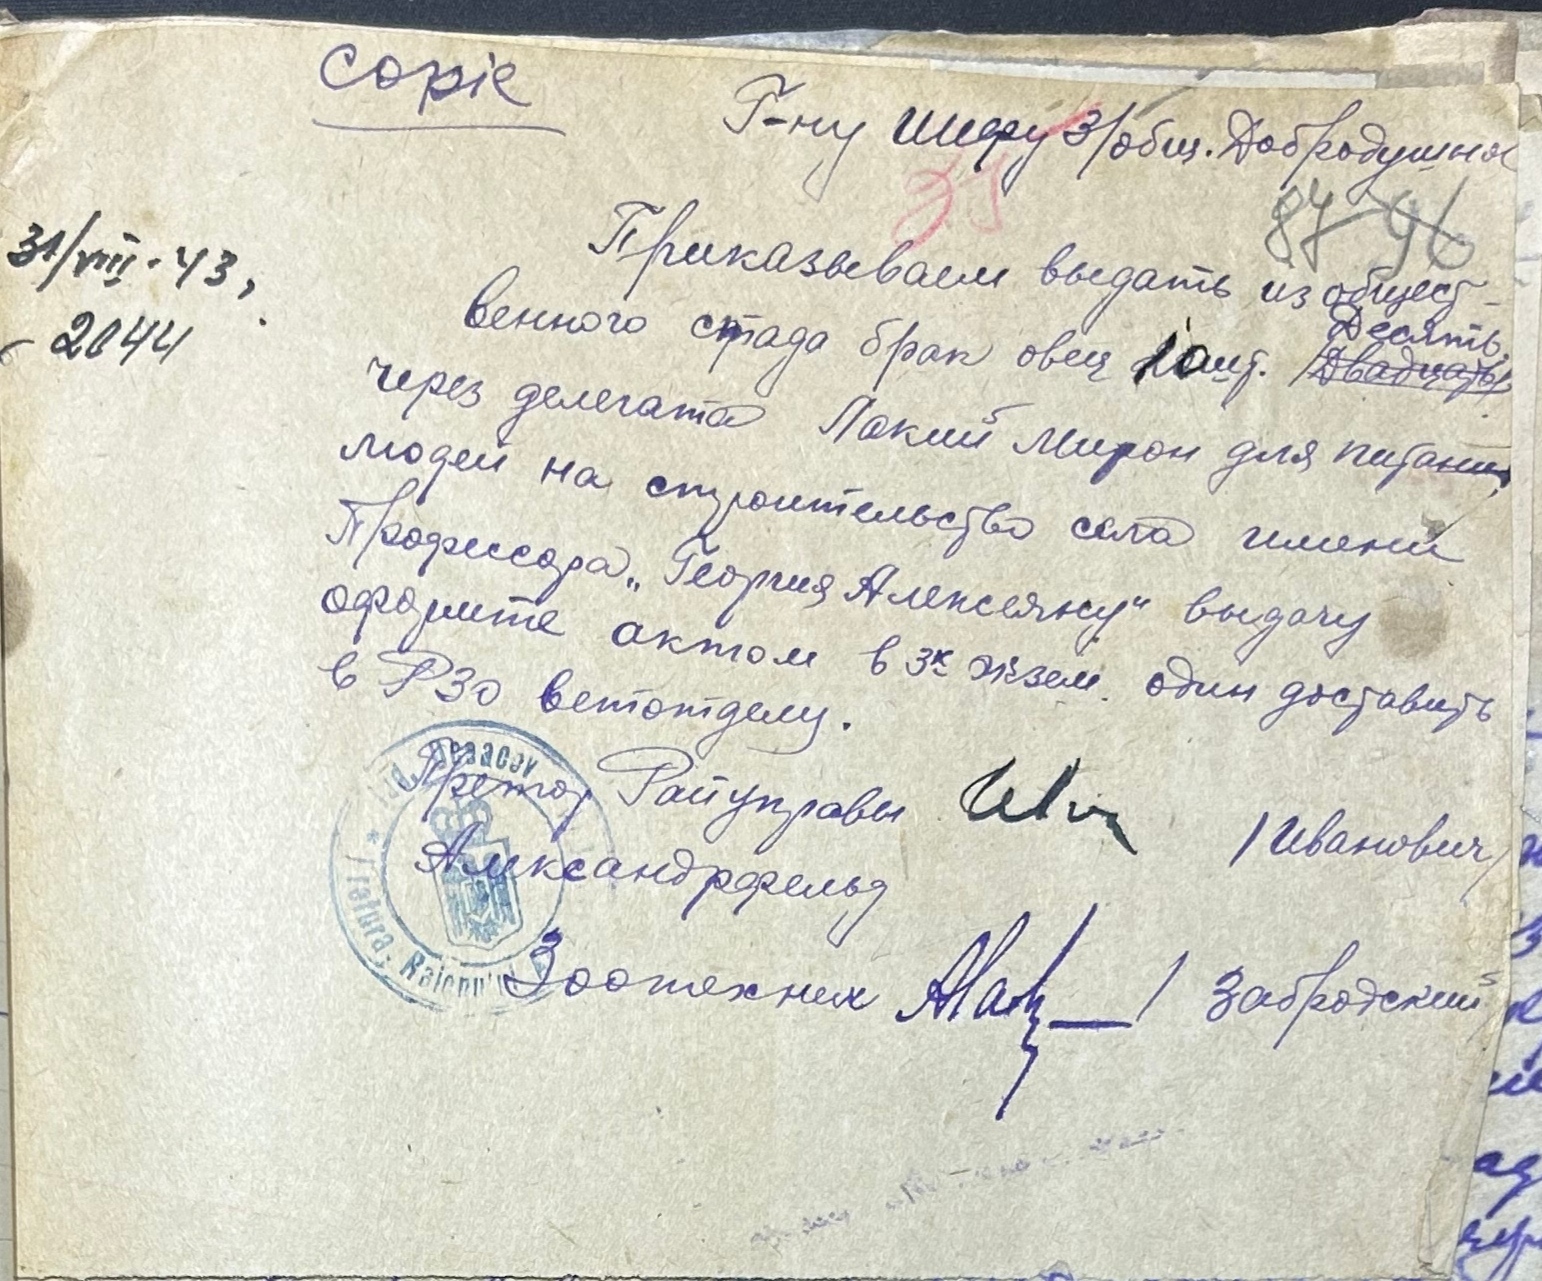 Copie
Г-ну Шефу З/общ. Добродушно
31
87 96
31/VIII-43,
2044
Приказываем выдать из общест-
венного стада брак овец 10 шт. /Двадцать/ Десять
через делегата Лакий Мирон для питания
людей на строительство села имени
Профессора „Георгия Алексяну" выдачу
оформите актом в 3х экзем. один доставить
в РЗО ветотделу.
Претор Райуправы /Иванович/
Александрфельд
Зоотехник / Забродский
Jud. Beracov * Pretura, Raionului